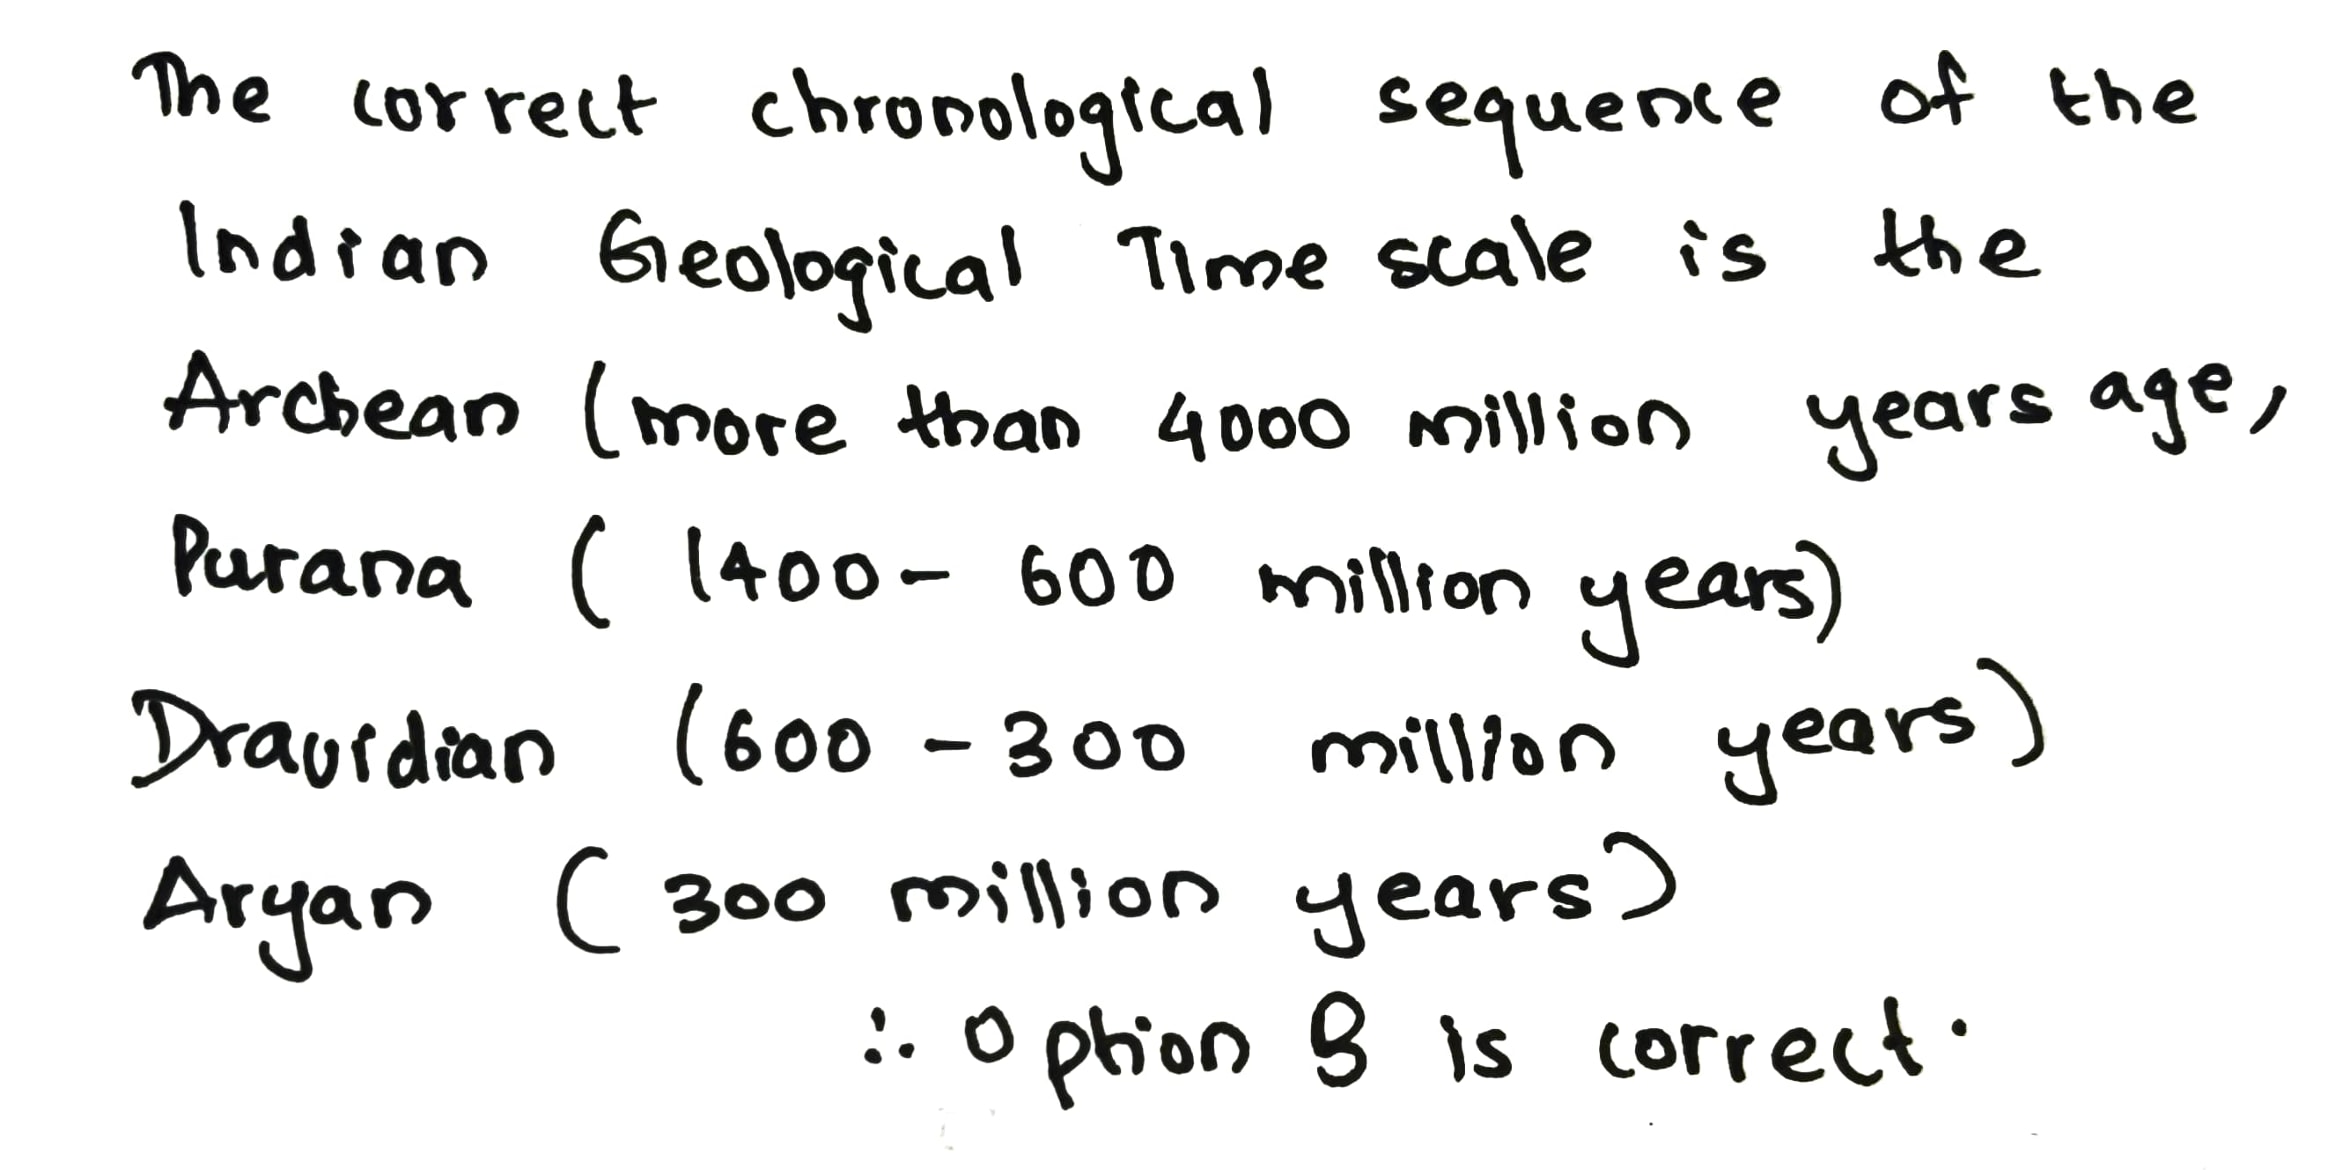 The correct chronological sequence of the
Indian Geological Time scale is the
Archean (more than 4000 million years age,
Purana ( 1400- 600 million years)
Dravidian (600 - 300 million years)
Aryan ( 300 million years)
∴ Option B is correct.